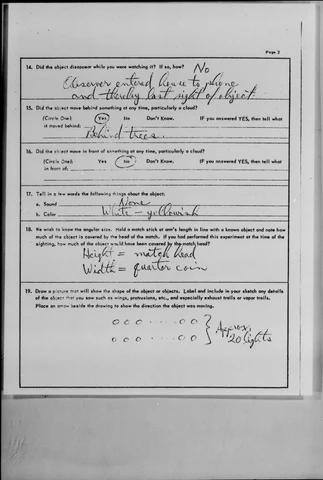 Page 2
14. Did the object disappear while you were watching it? If so, how? No
Observer entered house to phone
and thereby lost sight of object.
15. Did the object move behind something at any time, particularly a cloud?
(Circle One): Yes No Don't Know. IF you answered YES, then tell what
it moved behind:
Behind trees.
16. Did the object move in front of something at any time, particularly a cloud?
(Circle One): Yes No Don't Know. IF you answered YES, then tell what
in front of:
17. Tell in a few words the following things about the object:
a. Sound None
b. Color White - yellowish
18. We wish to know the angular size. Hold a match stick at arm's length in line with a known object and note how
much of the object is covered by the head of the match. If you had performed this experiment at the time of the
sighting, how much of the object would have been covered by the match head?
Height = match head
Width = quarter coin
19. Draw a picture that will show the shape of the object or objects. Label and include in your sketch any details
of the object that you saw such as wings, protrusions, etc., and especially exhaust trails or vapor trails.
Place an arrow beside the drawing to show the direction the object was moving.
Approx.
20 lights